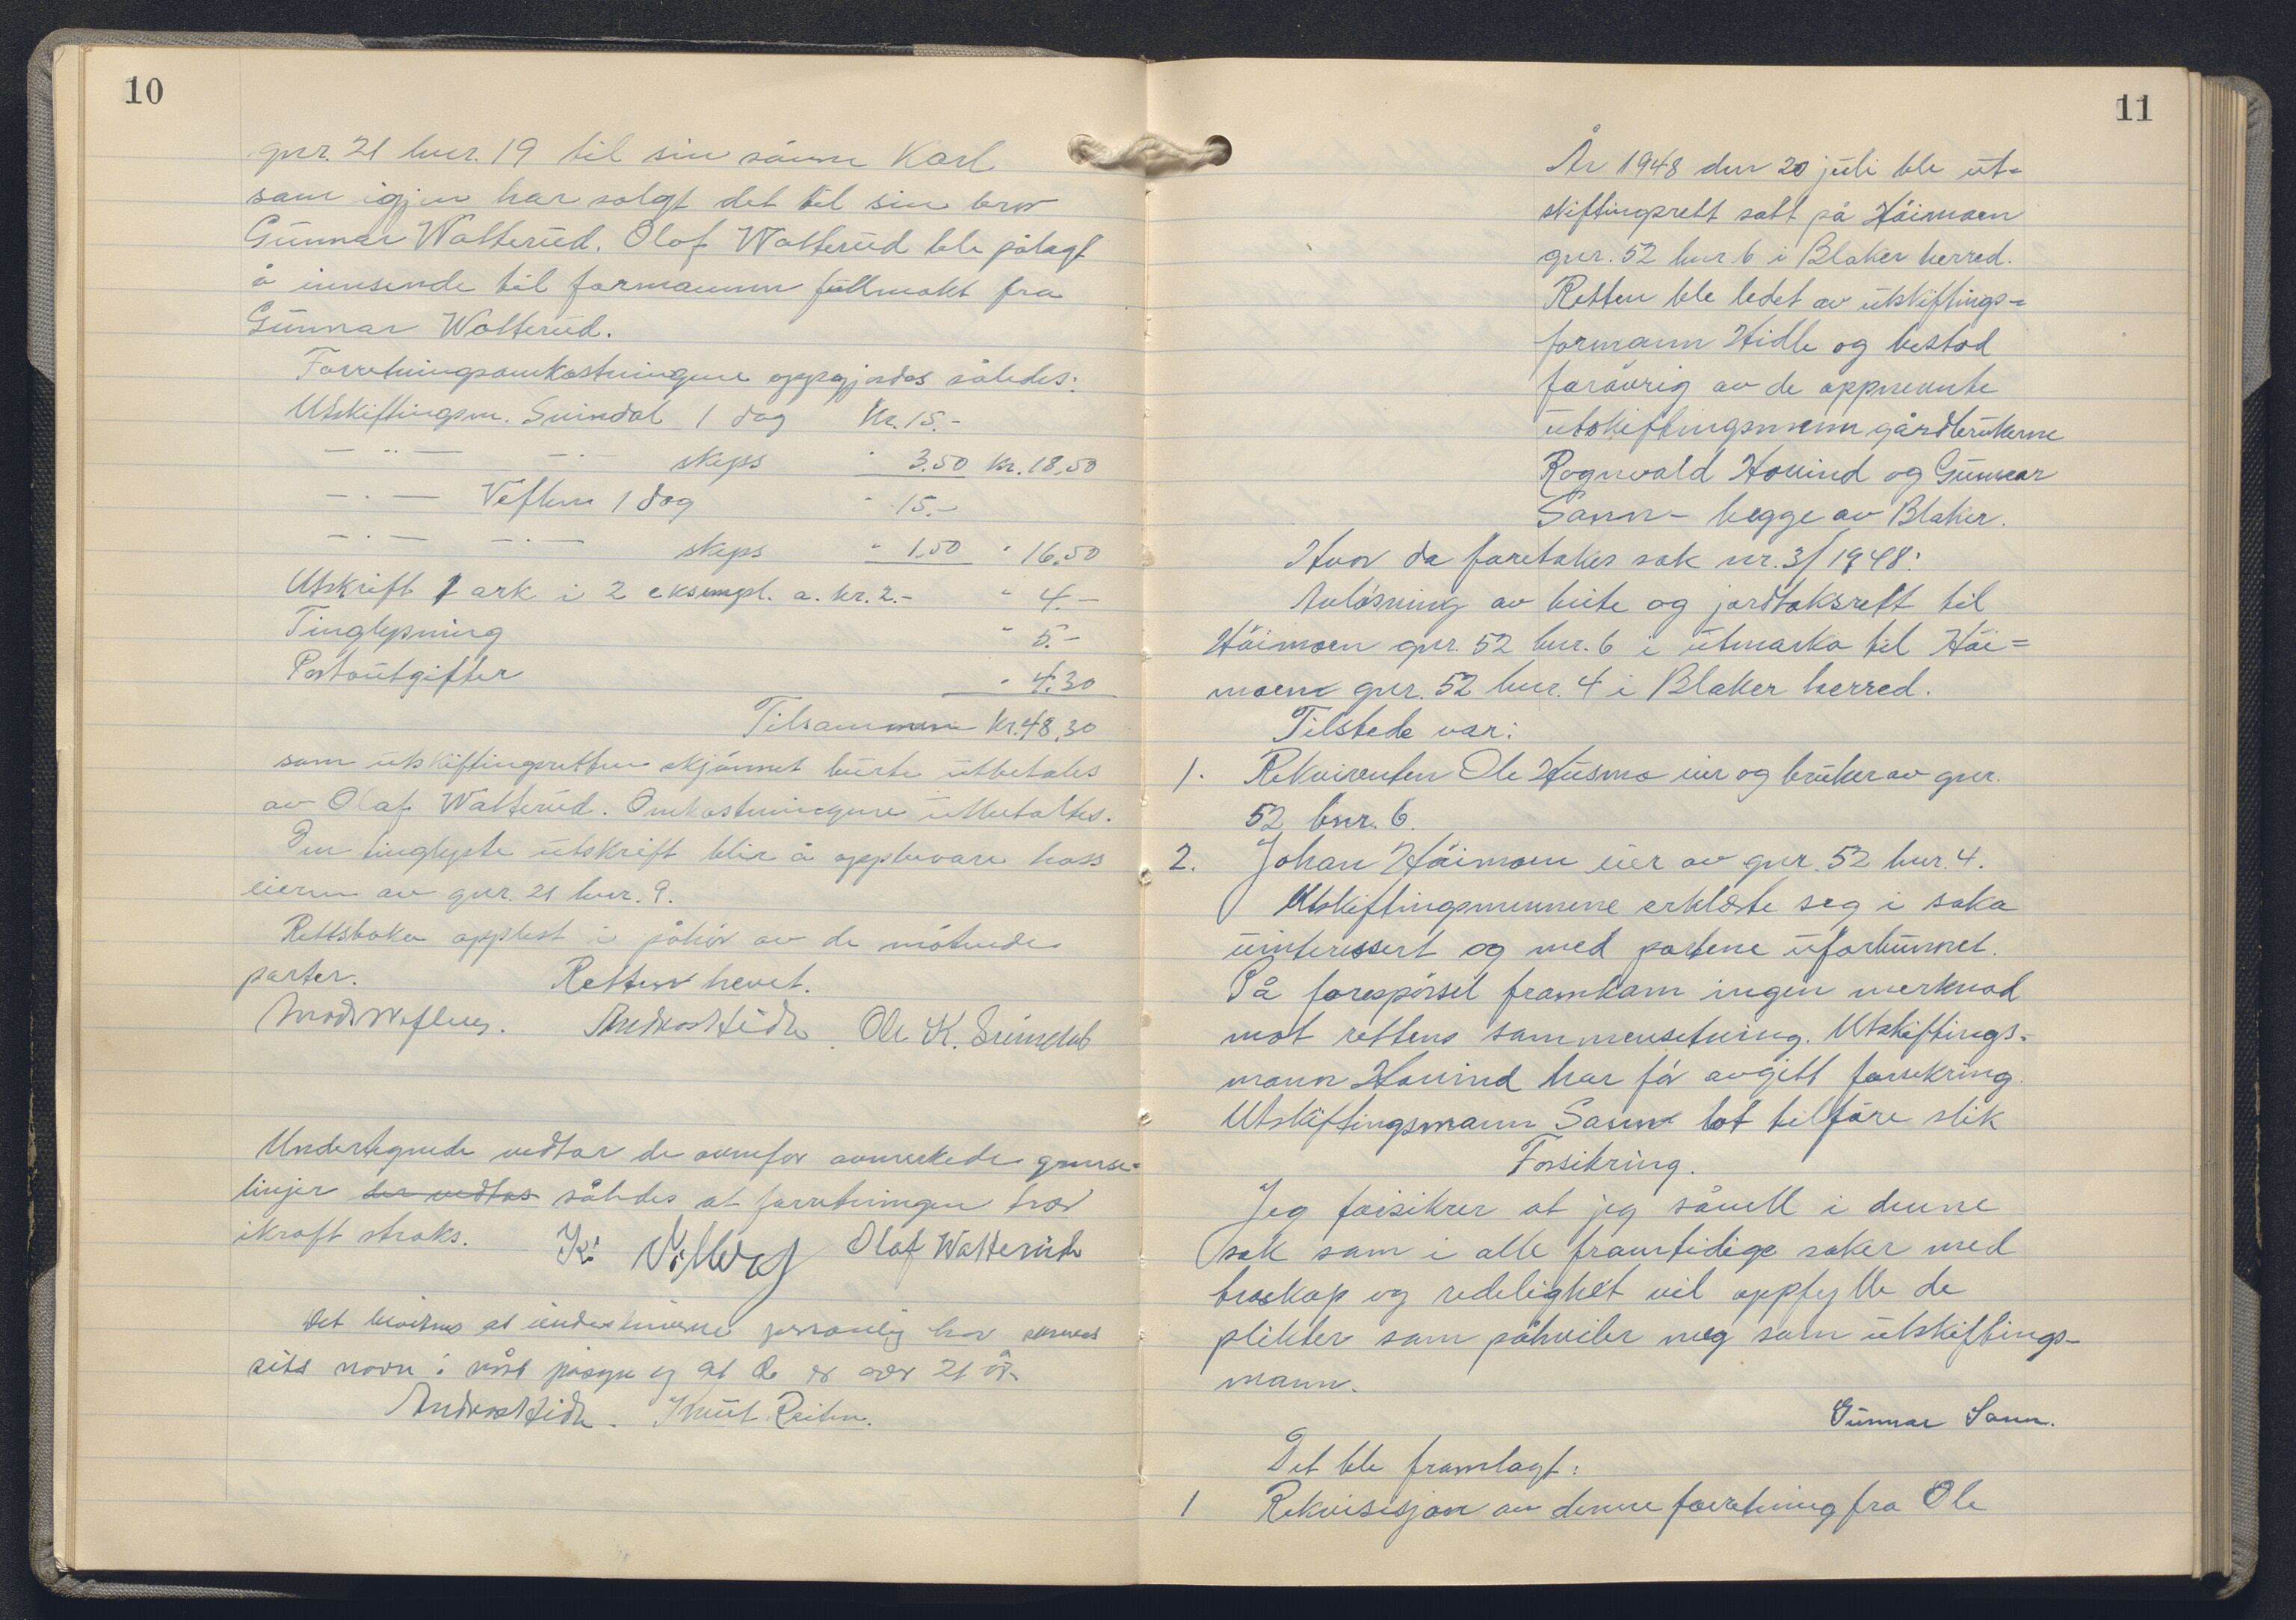 10
gnr. 21 bnr. 19 til sin sønn Karl
som igjen har solgt det til sin bror
Gunnar Walterud. Olaf Walterud ble pålagt
å innsende til formannen fullmakt fra
Gunnar Walterud.
Forretningsomkostningene oppgjordes således:
Utskiftingsm. Suindal 1 dag Kr. 15.-
— " — — " skyss " 3.50 kr. 18,50
— " — Veflen 1 dag " 15.-
— " — — " — skyss " 1,50 " 16,50
Utskrift 1 ark i 2 eksempl. a. kr. 2.- " 4.-
Tinglysning " 5.-
Portoutgifter " 4.30
Tilsammen kr. 48,30
som utskiftingsretten skjønnet burte utbetales
av Olaf Walterud. Omkostningene utbetaltes.
Den tinglyste utskrift blir å oppbevare hoss
eieren av gnr. 21 bnr. 9.
Rettsboken opplest i påhør av de møtende
parter. Retten hevet.
Mads Veflen. Andreas Hidle. Ole K. Suindal
Undertegnede vedtar de ovenfor anmerkede grense=
linjer der vedtas således at forretningen trær
ikraft straks. Olaf Walterud
Det bevitnes at underskriverne personlig har
sitt navn i vårt påsyn og at de er over 21 år
Andreas Hidle. Knut Reiten.
11
År 1948 den 20 juli ble ut=
skiftingsrett satt på Høimoen
gnr. 52 bnr. 6 i Blaker herred.
Retten ble ledet av utskiftings=
formann Hidle og bestod
forøvrig av de oppnevnte
utskiftingsmenn gårdbrukerne
Rognvald Hovind og Gunnar
Sann - begge av Blaker.
Hvor da foretakes sak nr. 3/1948:
Avløsning av beite og jordtaksrett til
Høimoen gnr. 52 bnr. 6 i utmarka til Høi=
moen gnr. 52 bnr. 4 i Blaker herred.
Tilstede var:
1. Rekvirenten Ole Husmo eier og bruker av gnr.
52 bnr. 6.
2. Johan Høimoen eier av gnr. 52 bnr. 4.
Utskiftingsmennene erklærte seg i saka
uinteressert og med partene uforbunnet.
På forespørsel framkom ingen merknad
mot rettens sammensetning. Utskiftings=
mann Hovind har før avgitt forsikring.
Utskiftingsmann Sann lot tilføre slik
Forsikring.
Jeg forsikrer at jeg såvell i denne
sak som i alle framtidige saker med
troskap og redelighet vil oppfylle de
plikter som påhviler meg som utskiftings-
mann.
Gunnar Sann.
Det ble framlagt:
1 Rekvisisjon av denne forretning fra Ole